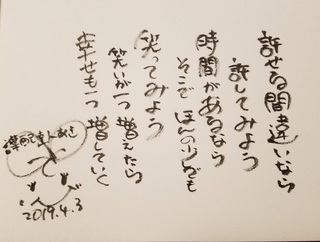 許せる間違いなら
許してみよう
時間があるなら
そこで ほんの少しでも
笑ってみよう
笑いが一つ 増えたら
幸せも一つ 増していく
2019.4.3